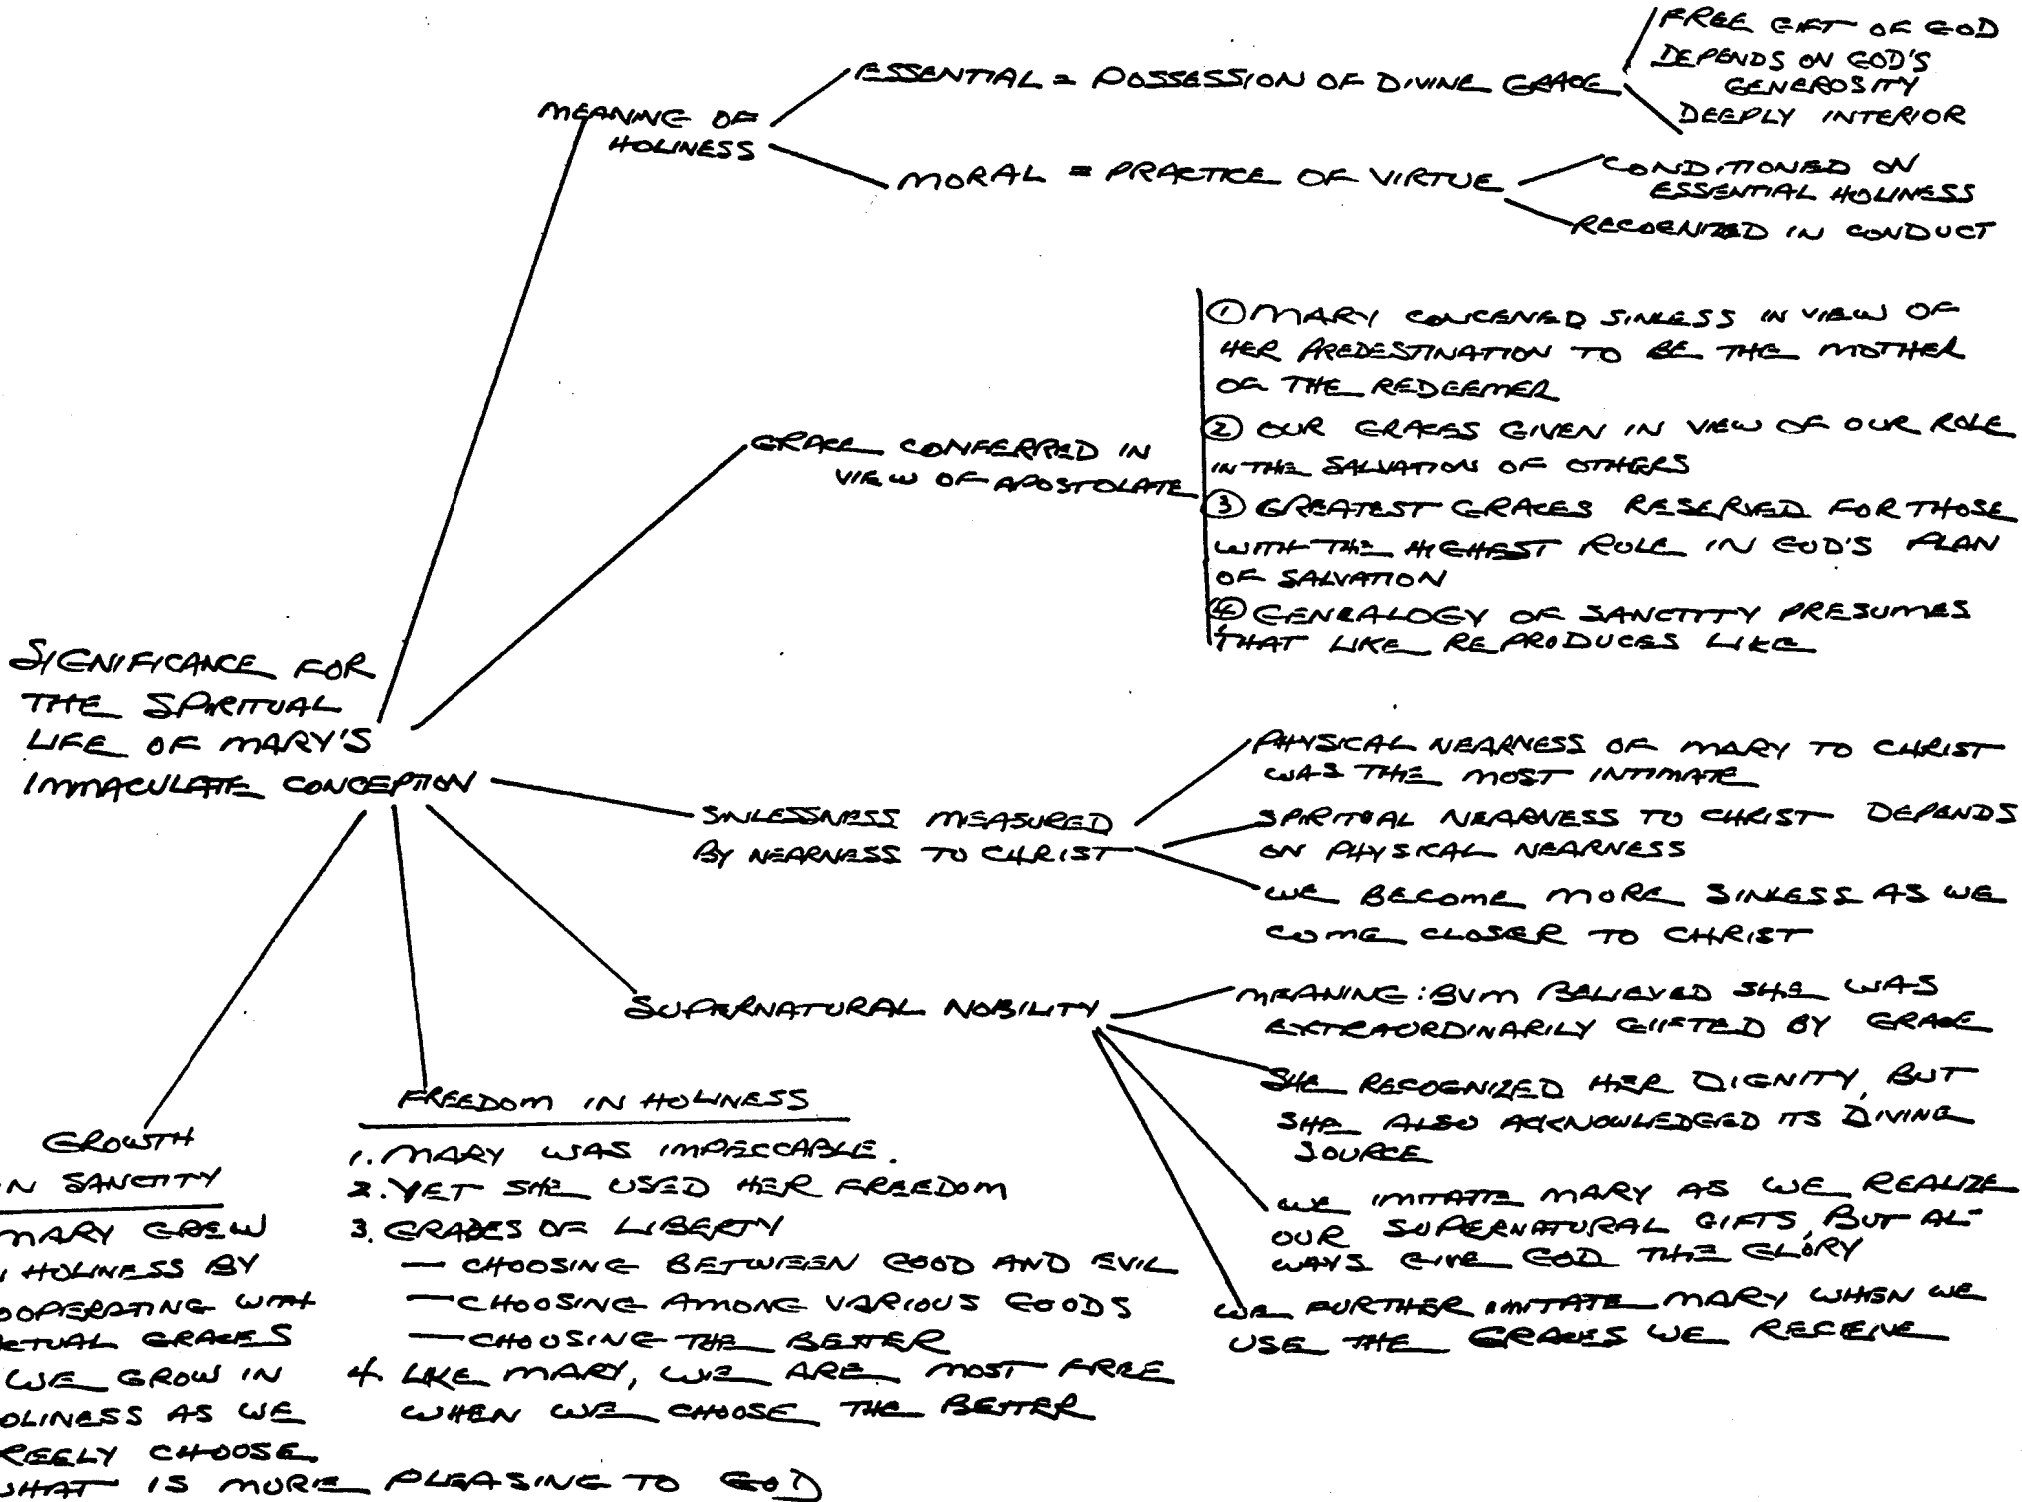 MEANING OF
HOLINESS
ESSENTIAL = POSSESSION OF DIVINE GRACE
FREE GIFT OF GOD
DEPENDS ON GOD'S
GENEROSITY
DEEPLY INTERIOR
MORAL = PRACTICE OF VIRTUE
CONDITIONED ON
ESSENTIAL HOLINESS
RECOGNIZED IN CONDUCT
GRACE CONFERRED IN
VIEW OF APOSTOLATE
① MARY CONCEIVED SINLESS IN VIEW OF
HER PREDESTINATION TO BE THE MOTHER
OF THE REDEEMER
② OUR GRACES GIVEN IN VIEW OF OUR ROLE
IN THE SALVATION OF OTHERS
③ GREATEST GRACES RESERVED FOR THOSE
WITH THE HIGHEST ROLE IN GOD'S PLAN
OF SALVATION
④ GENEALOGY OF SANCTITY PRESUMES
THAT LIKE REPRODUCES LIKE
SIGNIFICANCE FOR
THE SPIRITUAL
LIFE OF MARY'S
IMMACULATE CONCEPTION
SINLESSNESS MEASURED
BY NEARNESS TO CHRIST
PHYSICAL NEARNESS OF MARY TO CHRIST
WAS THE MOST INTIMATE
SPIRITUAL NEARNESS TO CHRIST DEPENDS
ON PHYSICAL NEARNESS
WE BECOME MORE SINLESS AS WE
COME CLOSER TO CHRIST
SUPERNATURAL NOBILITY
MEANING: BVM BELIEVED SHE WAS
EXTRAORDINARILY GIFTED BY GRACE
SHE RECOGNIZED HER DIGNITY, BUT
SHE ALSO ACKNOWLEDGED ITS DIVINE
SOURCE
WE IMITATE MARY AS WE REALIZE
OUR SUPERNATURAL GIFTS, BUT AL-
WAYS GIVE GOD THE GLORY
WE FURTHER IMITATE MARY WHEN WE
USE THE GRACES WE RECEIVE
FREEDOM IN HOLINESS
1. MARY WAS IMPECCABLE.
2. YET SHE USED HER FREEDOM
3. GRADES OF LIBERTY
— CHOOSING BETWEEN GOOD AND EVIL
— CHOOSING AMONG VARIOUS GOODS
— CHOOSING THE BETTER
4. LIKE MARY, WE ARE MOST FREE
WHEN WE CHOOSE THE BETTER
GROWTH
N SANCTITY
MARY GREW
N HOLINESS BY
OOPERATING WITH
CTUAL GRACES
WE GROW IN
OLINESS AS WE
REELY CHOOSE
WHAT IS MORE PLEASING TO GOD